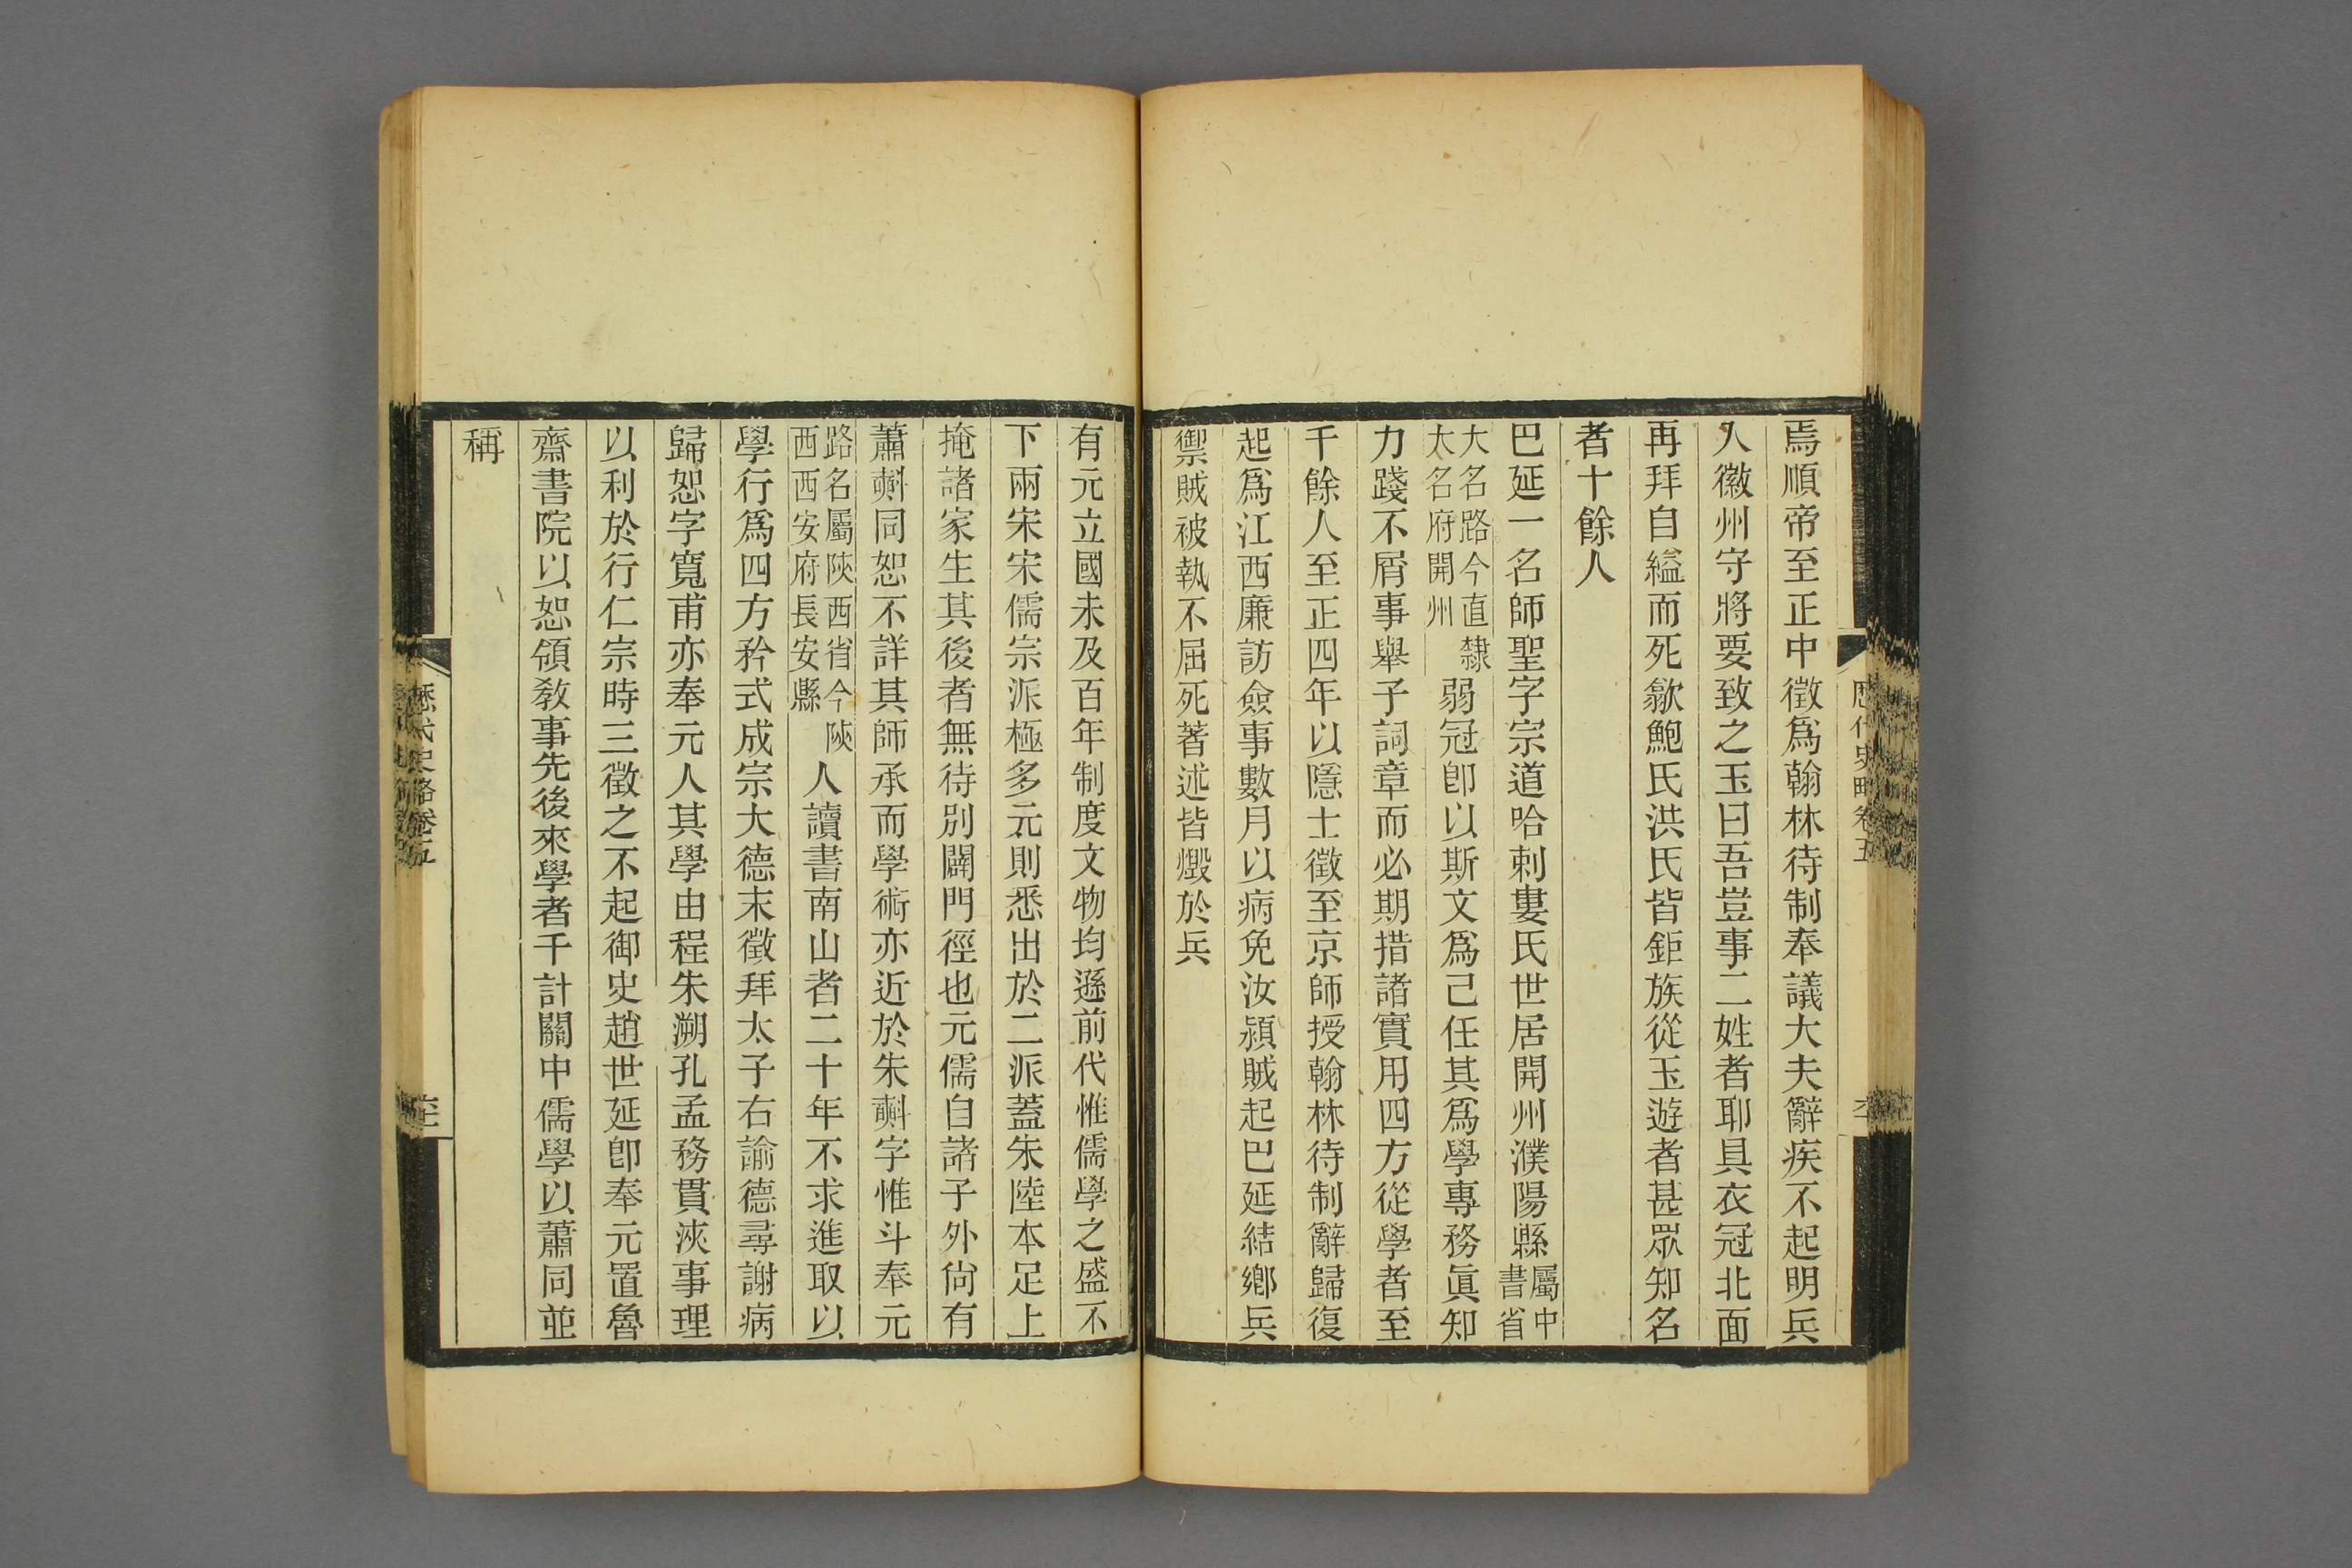 焉順帝至正中徵爲翰林待制奉議大夫辭疾不起明兵
入徽州守將要致之玉曰吾豈事二姓者耶具衣冠北面
再拜自縊而死歙鮑氏洪氏皆鉅族從玉遊者甚眾知名
者十餘人
巴延一名師聖字宗道哈剌婁氏世居開州濮陽縣屬中書省
大名路今直隸大名府開州弱冠卽以斯文爲己任其爲學專務眞知
力踐不屑事舉子詞章而必期措諸實用四方從學者至
千餘人至正四年以隱士徵至京師授翰林待制辭歸復
起爲江西廉訪僉事數月以病免汝潁賊起巴延結鄉兵
禦賊被執不屈死著述皆燬於兵
歷代史略卷五
有元立國未及百年制度文物均遜前代惟儒學之盛不
下兩宋宋儒宗派極多元則悉出於二派蓋朱陸本足上
掩諸家生其後者無待別闢門徑也元儒自諸子外尙有
蕭㪺同恕不詳其師承而學術亦近於朱㪺字惟斗奉元
路名屬陝西省今陝西西安府長安縣人讀書南山者二十年不求進取以
學行爲四方矜式成宗大德末徵拜太子右諭德尋謝病
歸恕字寬甫亦奉元人其學由程朱溯孔孟務貫浹事理
以利於行仁宗時三徵之不起御史趙世延卽奉元置魯
齋書院以恕領敎事先後來學者千計關中儒學以蕭同並
稱
歷代史略卷五